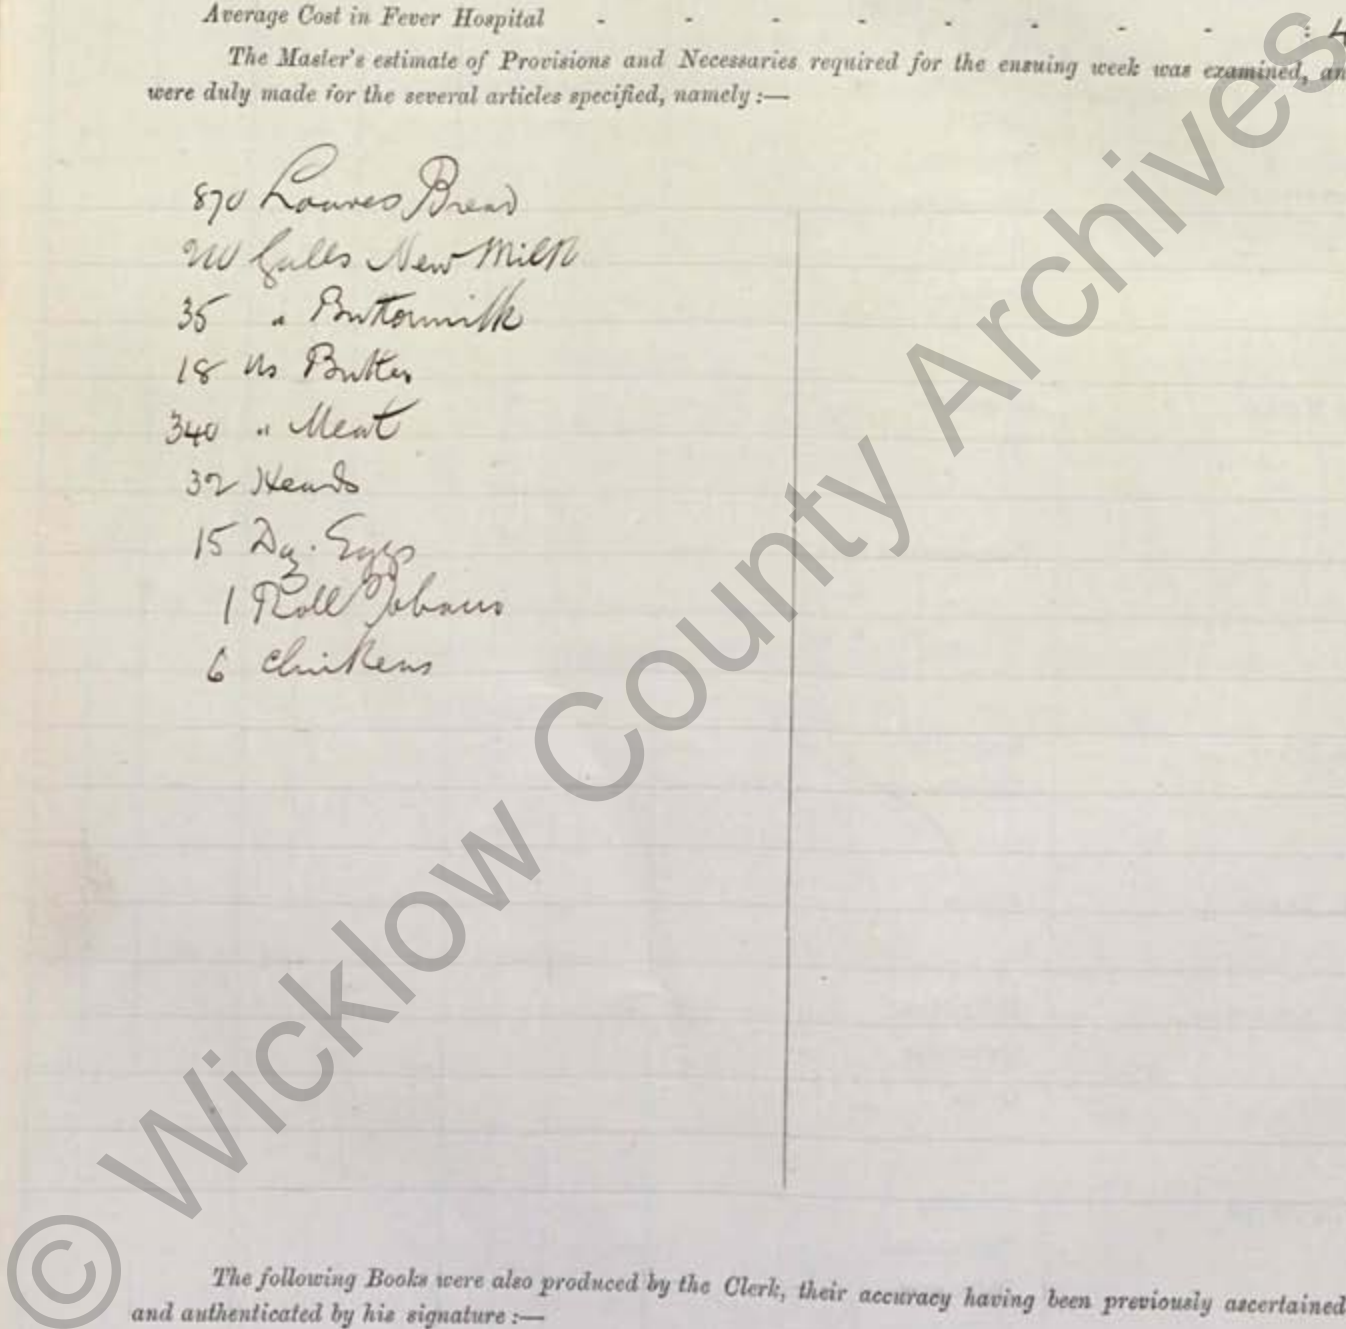 Average Cost in Fever Hospital - - - - - - - - : 4
The Master's estimate of Provisions and Necessaries required for the ensuing week was examined, an
were duly made for the several articles specified, namely :—
870 Loaves Bread
210 Galls New Milk
35 " Buttermilk
18 lbs Butter
340 " Meat
32 Heads
15 Dz. Eggs
1 Roll Tobacco
6 Chickens
The following Books were also produced by the Clerk, their accuracy having been previously ascertained
and authenticated by his signature :—
© Wicklow County Archives